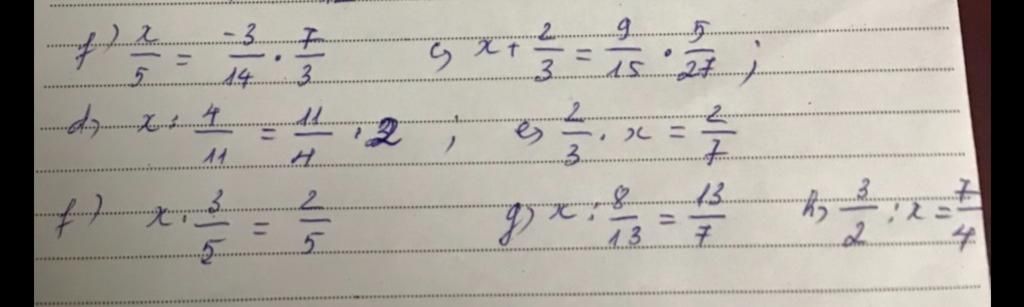 f) x/5 = -3/14 . 7/3 c, x + 2/3 = 9/15 . 5/27 ;
d, x : 4/11 = 11/4 . 2 ; e, 2/3 . x = 2/7
f) x . 3/5 = 2/5 g, x : 8/13 = 13/7 h, 3/2 : x = 7/4